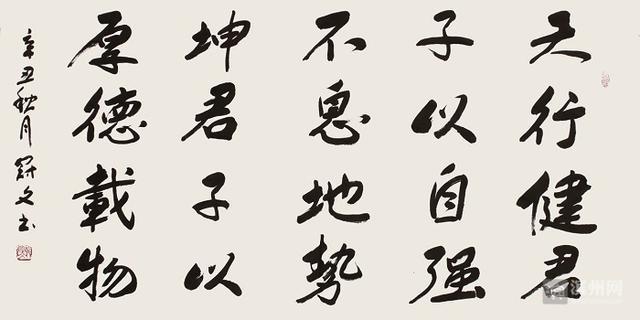 天行健君
子以自强
不息地势
坤君子以
厚德载物
辛丑秋月
文书
滨州网